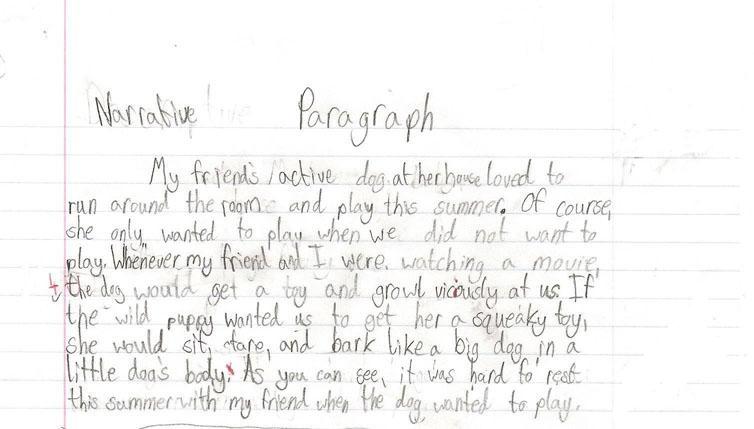 Narrative Paragraph
My friend's active dog at her house loved to
run around the room and play this summer. Of course,
she only wanted to play when we did not want to
play. Whenever my friend and I were watching a movie,
the dog would get a toy and growl viciously at us. If
the wild puppy wanted us to get her a squeaky toy,
she would sit, stare, and bark like a big dog in a
little dog's body. As you can see, it was hard to rest
this summer with my friend when the dog wanted to play.